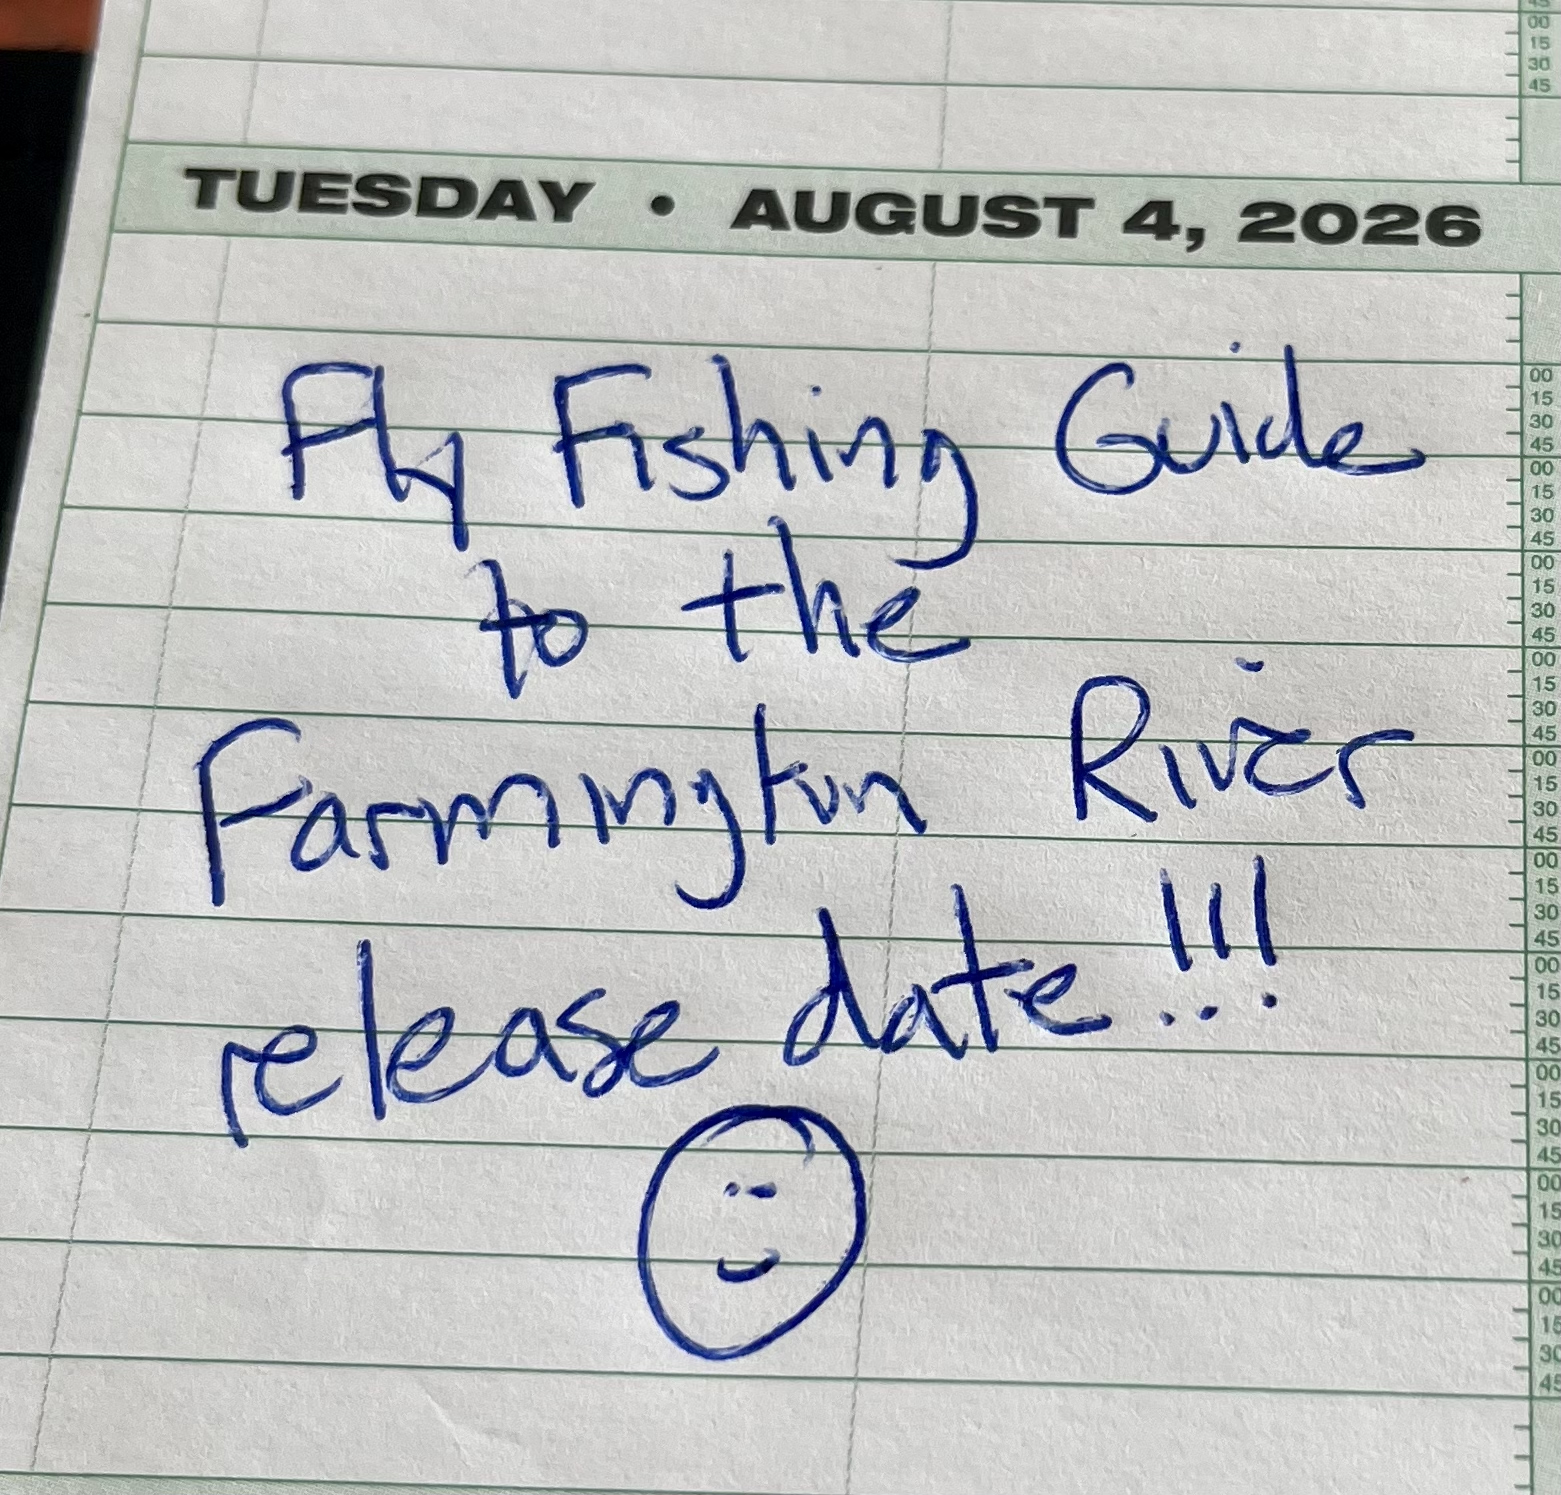 TUESDAY • AUGUST 4, 2026
Fly Fishing Guide
to the
Farmington River
release date!!!
45
00
15
30
45
00
15
30
45
00
15
30
45
00
15
30
45
00
15
30
45
00
15
30
45
00
15
30
45
00
15
30
45
00
15
30
45
00
15
30
45
00
15
30
45